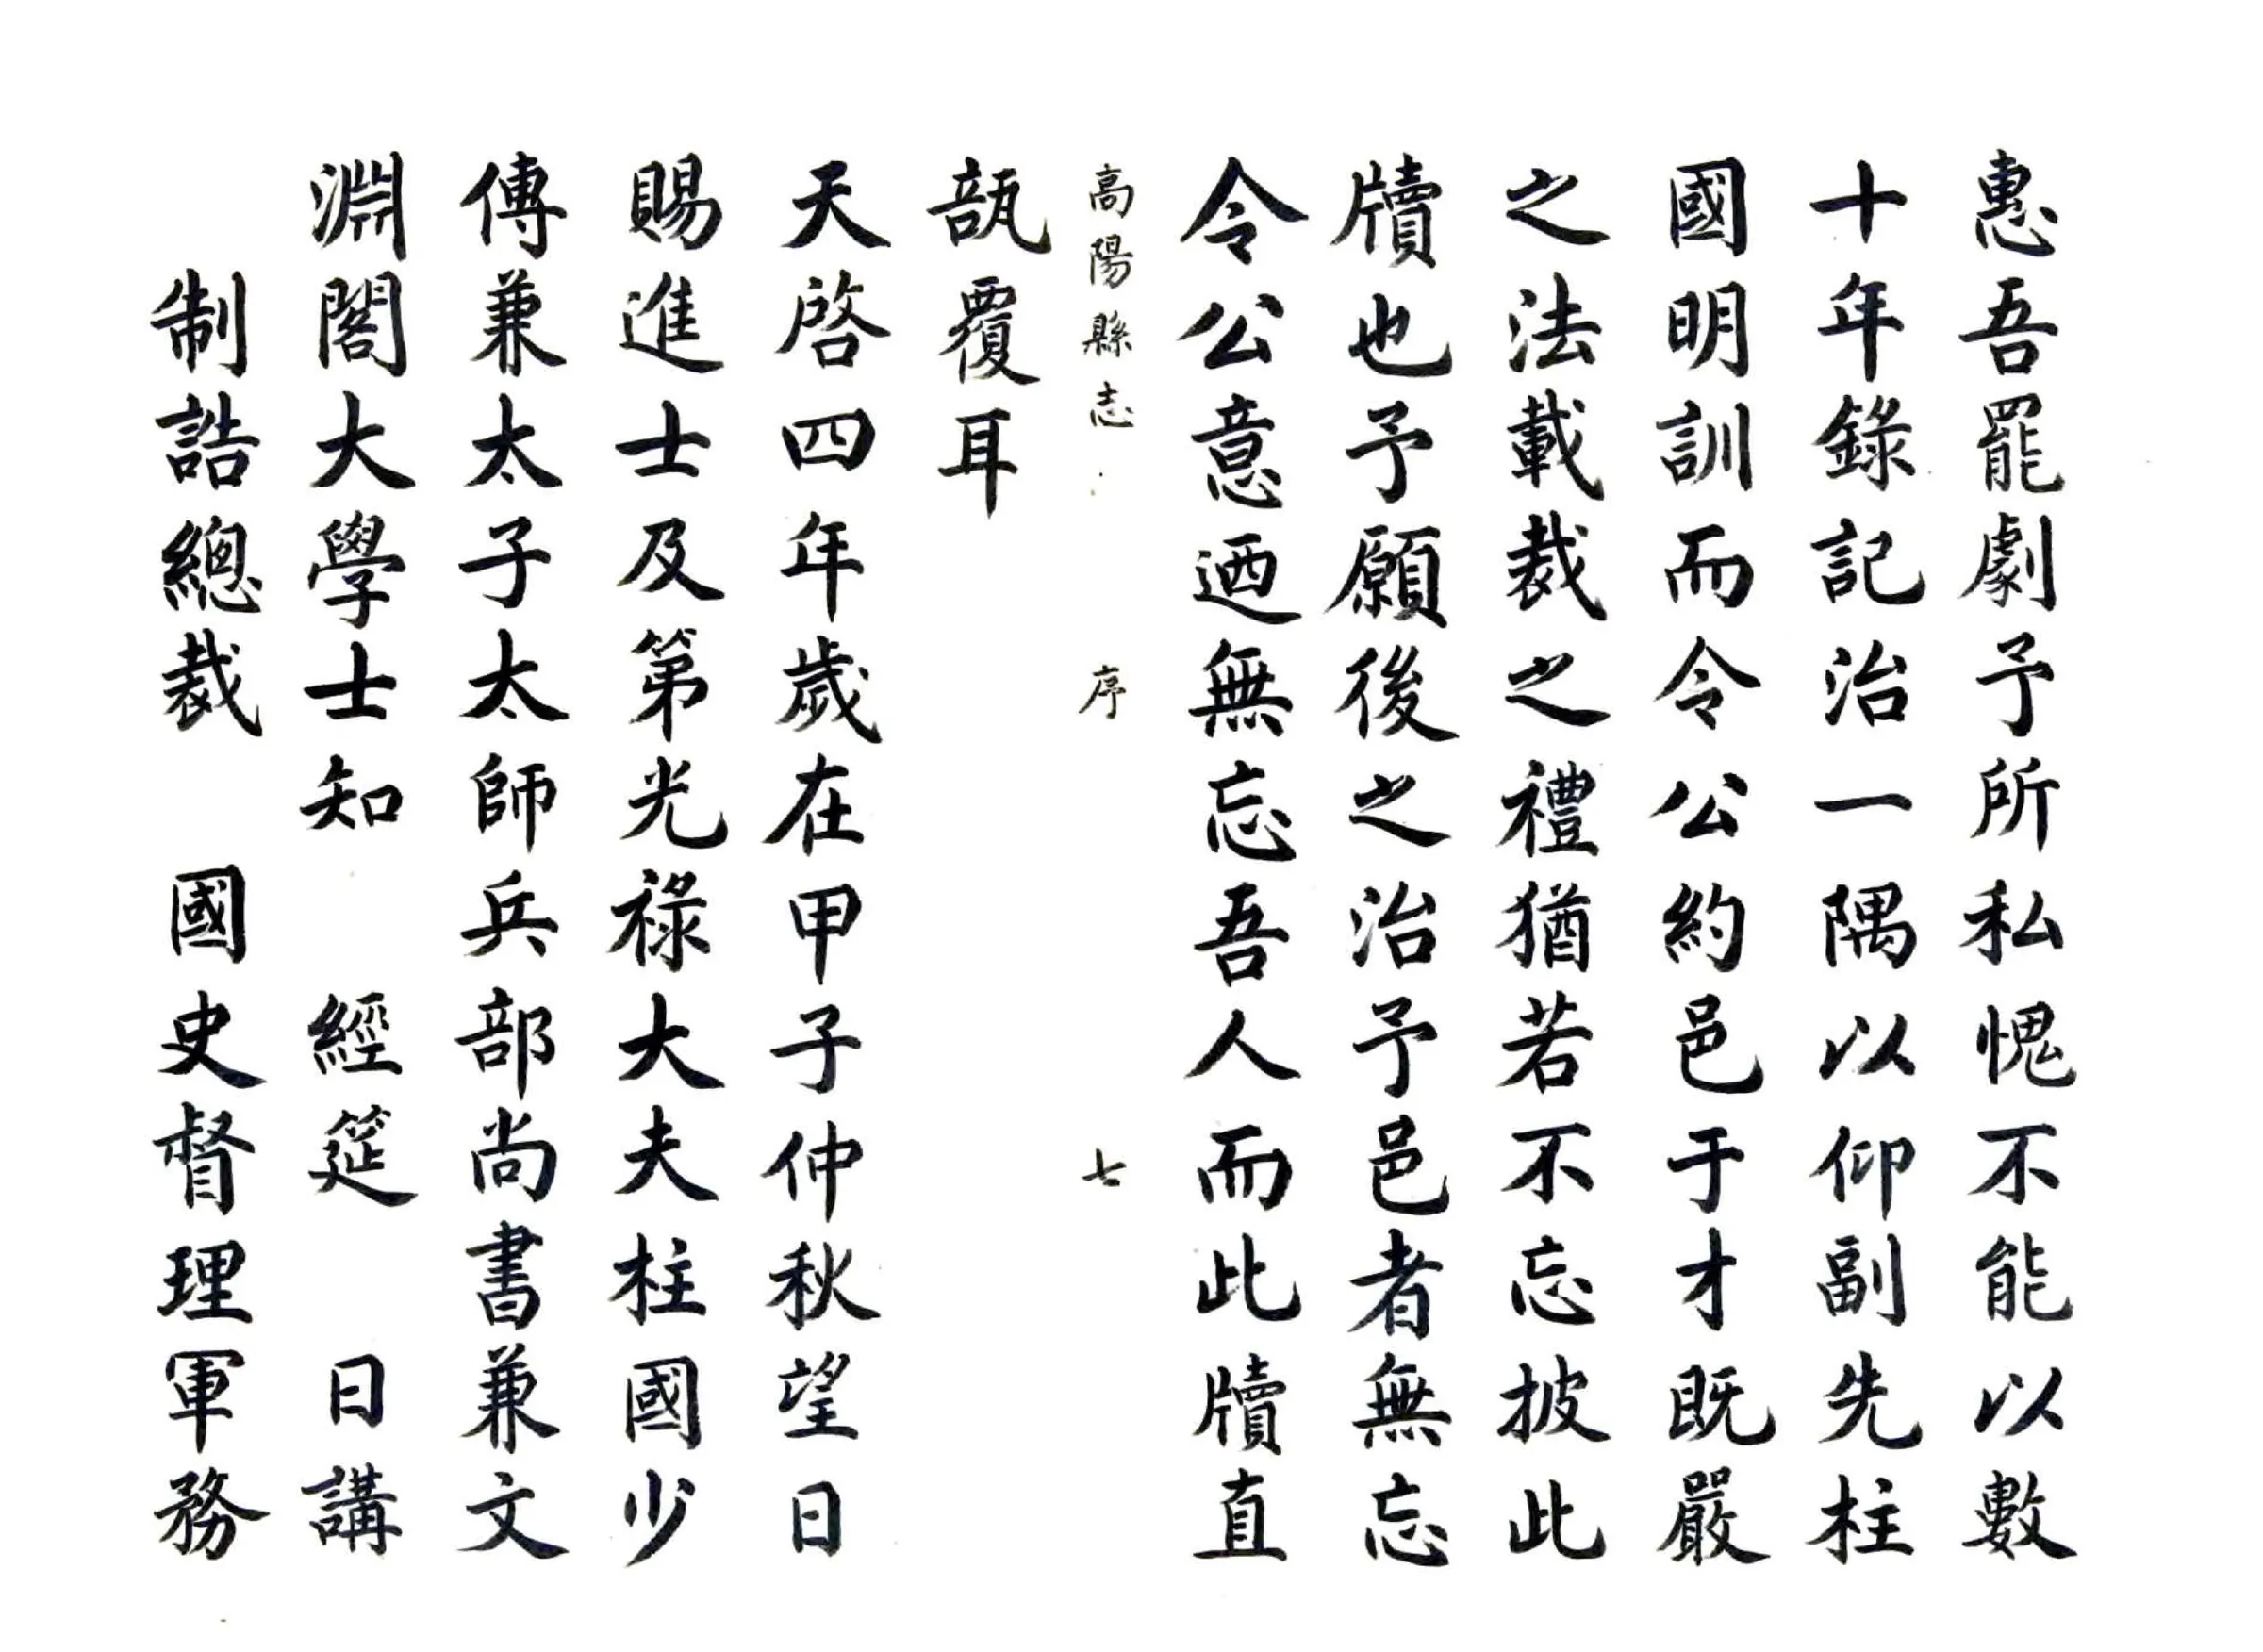 惠吾罷劇予所私愧不能以數
十年錄記治一隅以仰副先柱
國明訓而令公約邑于才既嚴
之法載裁之禮猶若不忘披此
牘也予願後之治予邑者無忘
令公意迺無忘吾人而此牘直
高陽縣志 序 七
瓿覆耳
天啓四年歲在甲子仲秋望日
賜進士及第光祿大夫柱國少
傅兼太子太師兵部尚書兼文
淵閣大學士知 經筵 日講
制誥總裁 國史督理軍務